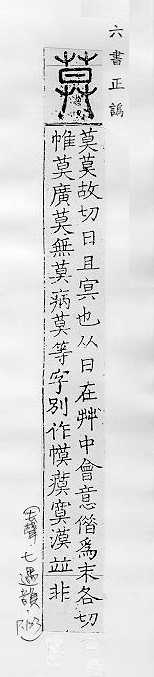 六書正譌
莫
莫莫故切日且冥也从日在茻中會意借為末各切
帷莫廣莫無莫病莫等字別作幙瘼寞漠竝非
去聲 七遇韻